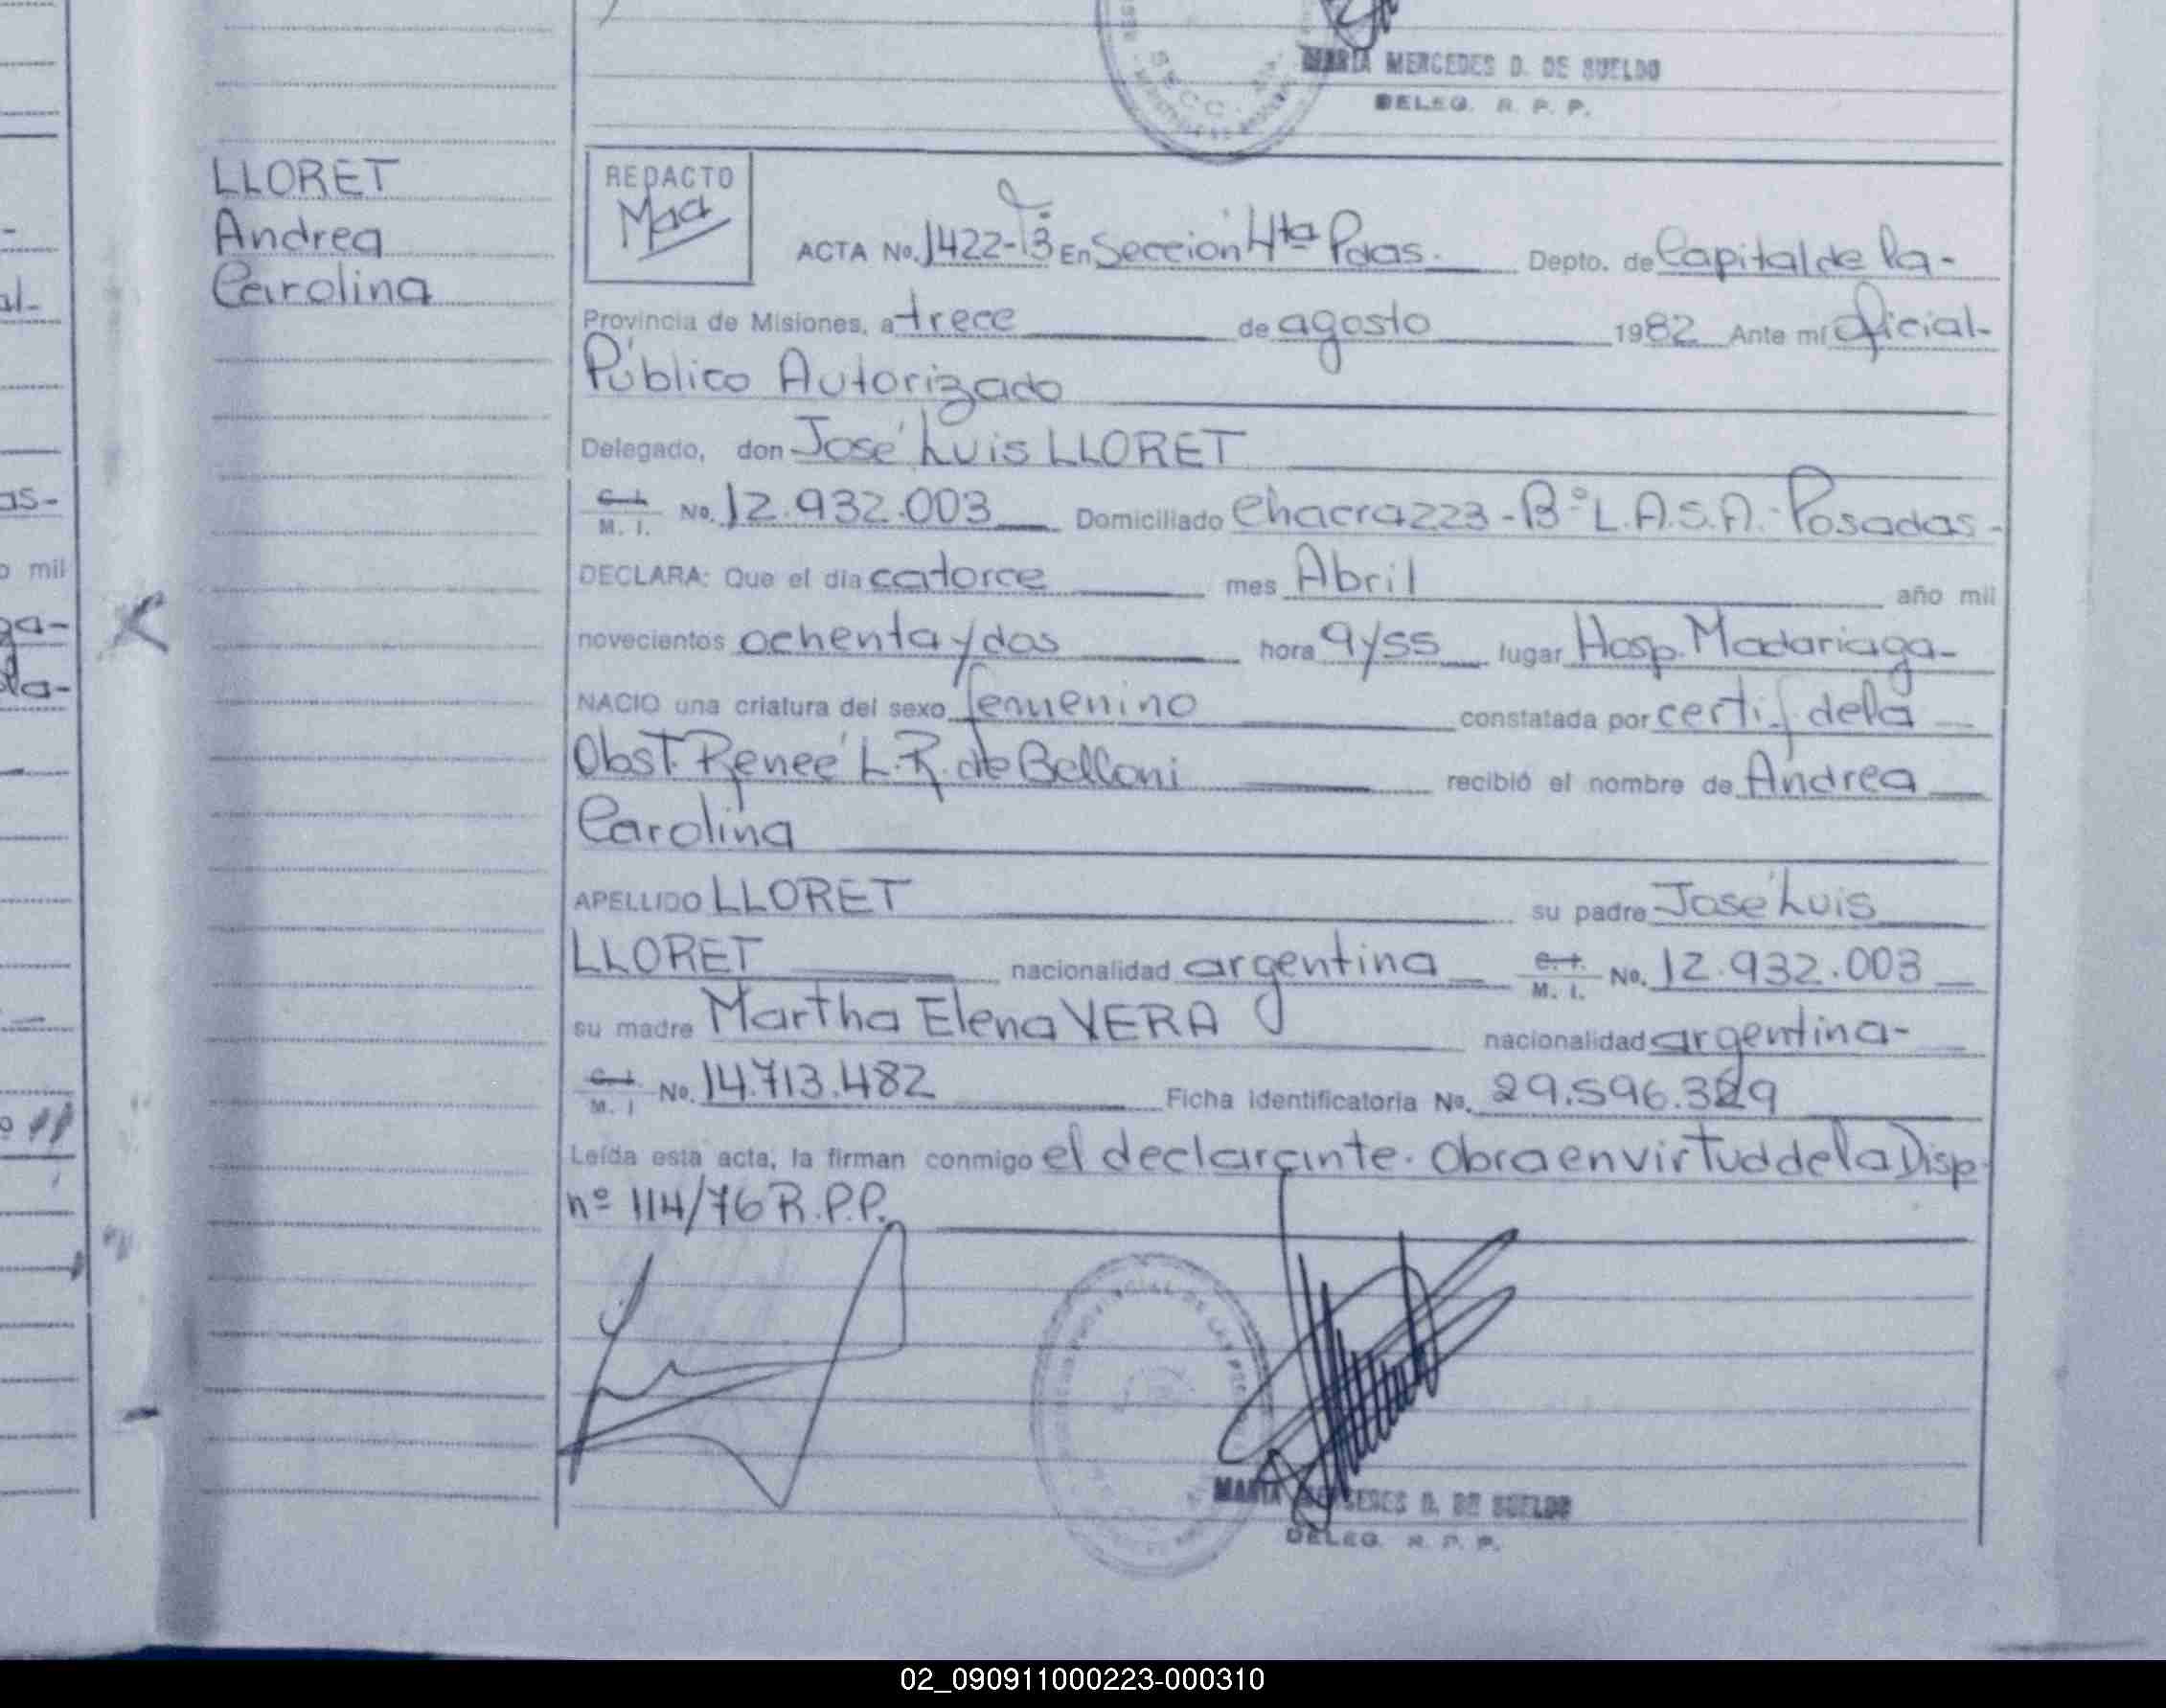 MARIA MERCEDES D. DE SUELDO
DELEG. R. P. P.
LLORET
Andrea
Carolina
REDACTO
ACTA No. 1422-T3 En Sección 4ta Pdas. Depto. de Capital de la-
Provincia de Misiones, a trece de agosto 1982 Ante mí Oficial-
Público Autorizado
Delegado, don José Luis LLORET
C. I. M. I. No. 12.932.003 Domiciliado Chacra 223-B° L.A.S.A.-Posadas-
DECLARA: Que el día catorce mes Abril año mil
novecientos ochenta y dos hora 9y55 lugar Hosp. Madariaga-
NACIO una criatura del sexo femenino constatada por certif. de la
Obst. Reneé L.R. de Belloni recibió el nombre de Andrea
Carolina
APELLIDO LLORET su padre José Luis
LLORET nacionalidad argentina C. I. M. I. No. 12.932.003
su madre Martha Elena VERA nacionalidad argentina-
C. I. M. I No. 14.713.482 Ficha Identificatoria No. 29.596.329
Leída esta acta, la firman conmigo el declarante. Obra en virtud de la Disp.
nº 114/76 R.P.P.
MARIA MERCEDES D. DE SUELDO
DELEG. R. P. P.
02_090911000223-000310